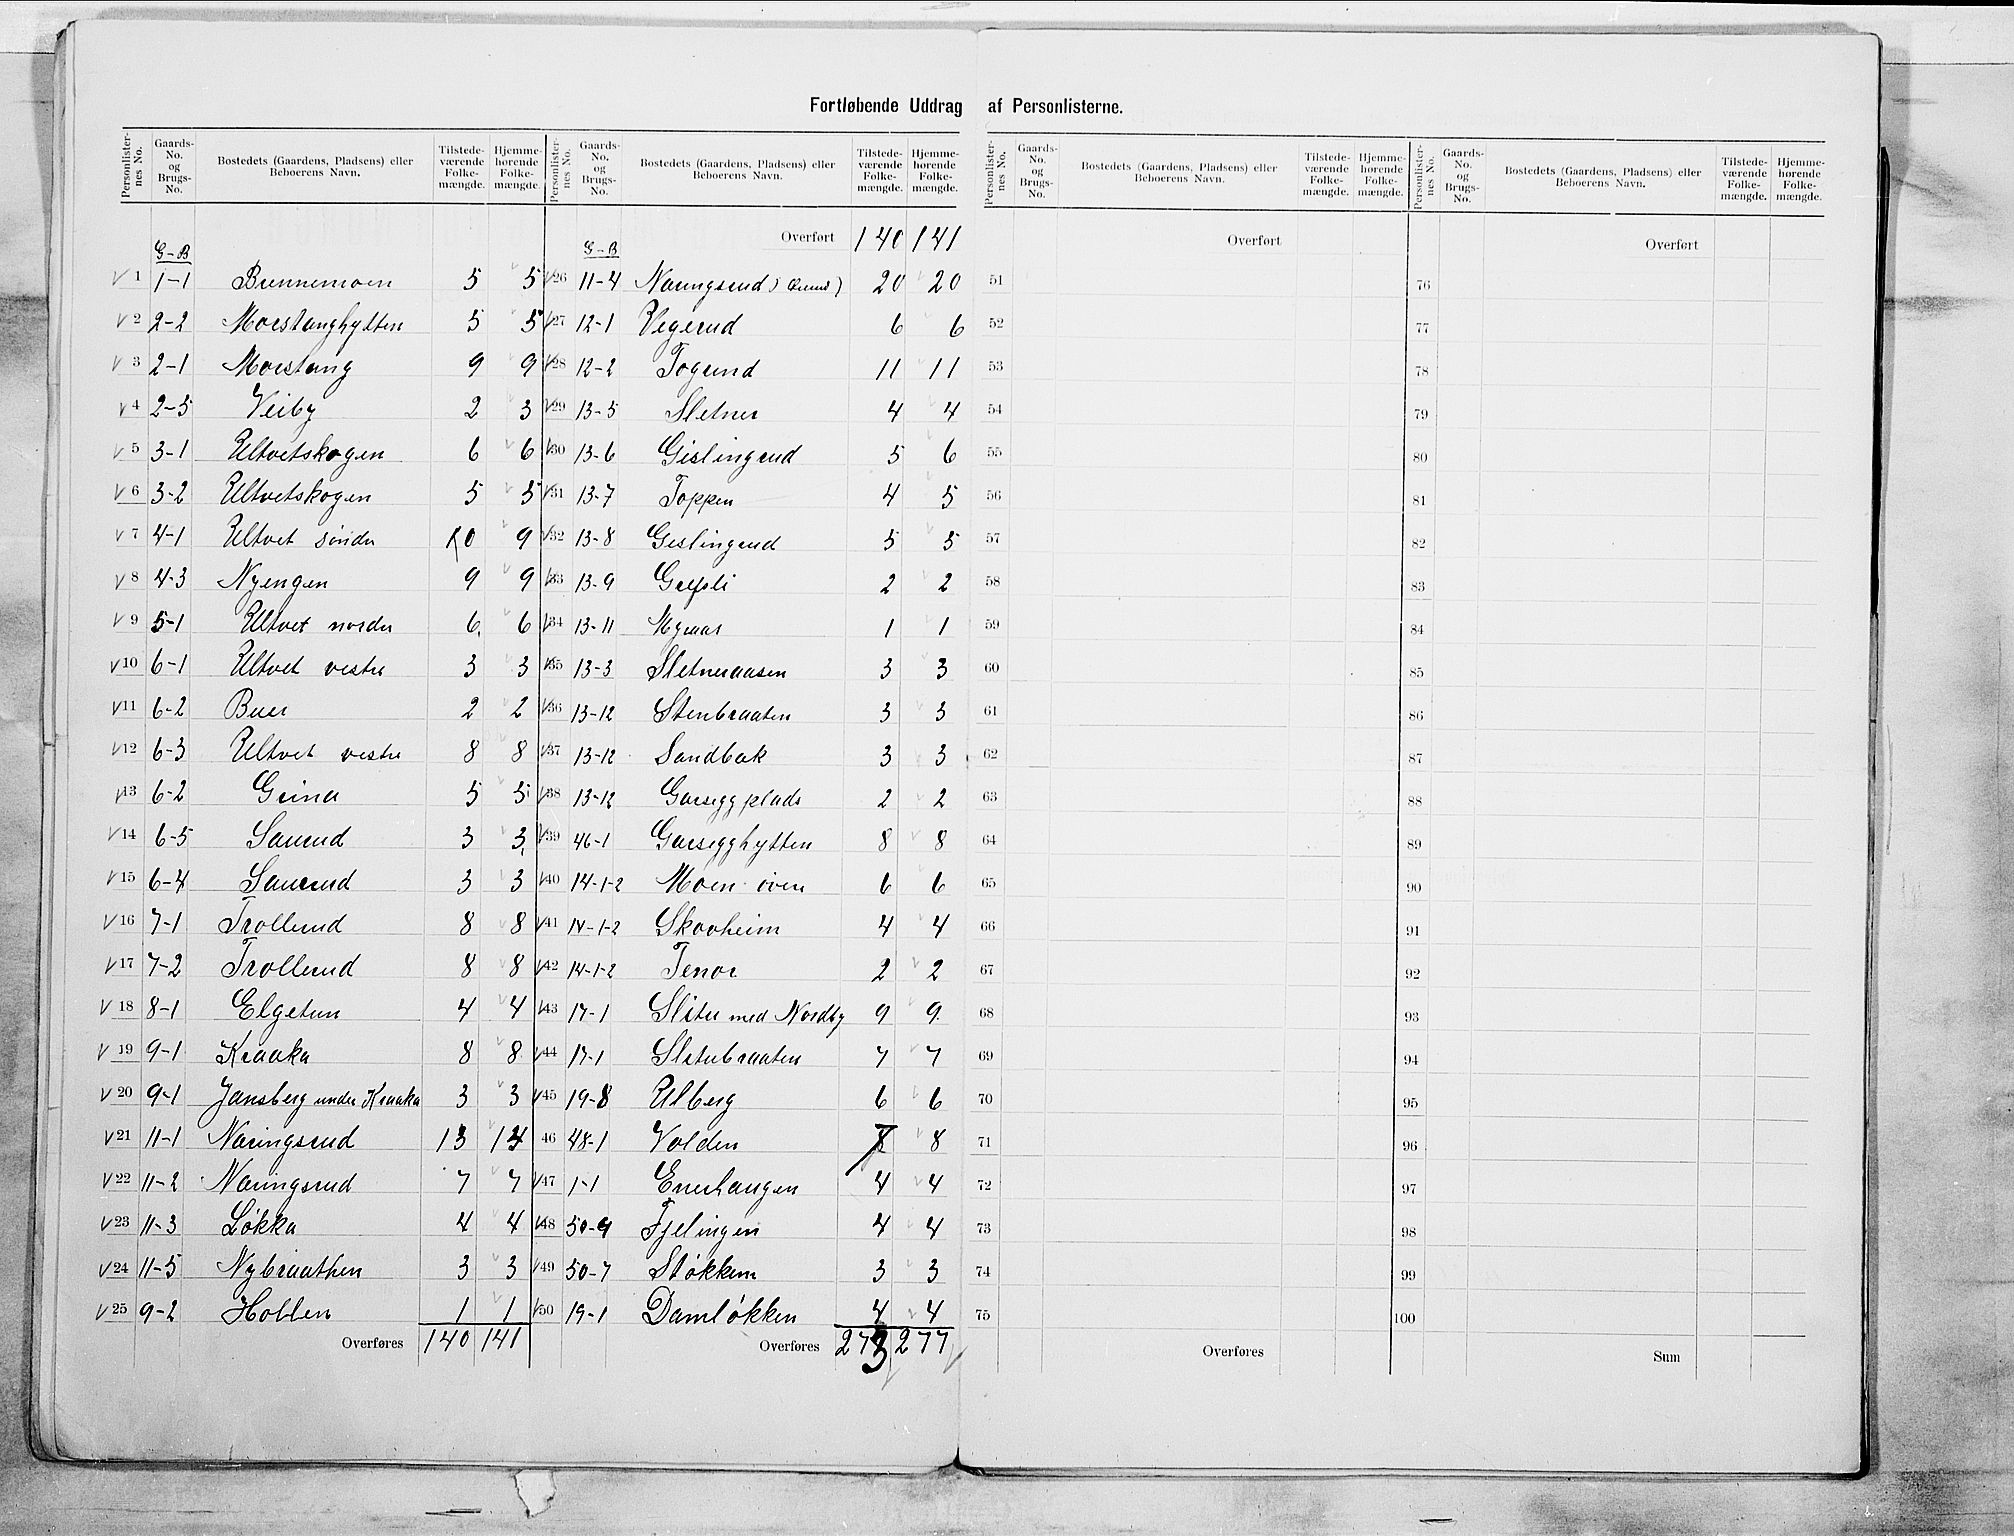 Fortløbende Uddrag af Personlisterne.
Personlister-nes No. | Gaards-No. og Brugs-No. | Bostedets (Gaardens, Pladsens) eller Beboerens Navn. | Tilstede-værende Folke-mængde. | Hjemme-hørende Folke-mængde.
G-B
1 1-1 Brennemoen 5 5
2 2-2 Morstanghytten 5 5
3 2-1 Morstang 9 9
4 2-5 Veiby 2 3
5 3-1 Ultvetskogen 6 6
6 3-2 Ultvetskogen 5 5
7 4-1 Ultvet søndre 10 9
8 4-3 Nyengen 9 9
9 5-1 Ultvet nordre 6 6
10 6-1 Ultvet vestre 3 3
11 6-2 Buer 2 2
12 6-3 Ultvet vestre 8 8
13 6-2 Grina 5 5
14 6-5 Saurud 3 3
15 6-4 Saurud 3 3
16 7-1 Trollerud 8 8
17 7-2 Trollerud 8 8
18 8-1 Elgetun 4 4
19 9-1 Kraaka 8 8
20 9-1 Jansberg under Kraaka 3 3
21 11-1 Naringsrud 13 14
22 11-2 Naringsrud 7 7
23 11-3 Løkka 4 4
24 11-5 Nybraathen 3 3
25 9-2 Hollen 1 1
Overføres 140 141
Personlister-nes No. | Gaards-No. og Brugs-No. | Bostedets (Gaardens, Pladsens) eller Beboerens Navn. | Tilstede-værende Folke-mængde. | Hjemme-hørende Folke-mængde.
Overført 140 141
G-B
26 11-4 Naringsrud 20 20
27 12-1 Vegerud 6 6
28 12-2 Togrund 11 11
29 13-5 Sletner 4 4
30 13-6 Gislingrud 5 6
31 13-7 Toppen 4 5
32 13-8 Gislingrud 5 5
33 13-9 Grefsli 2 2
34 13-11 Myraas 1 1
35 13-3 Sletneraasen 3 3
36 13-12 Stenbraaten 3 3
37 13-12 Sandbak 3 3
38 13-12 Garseggplads 2 2
39 46-1 Garsegghytten 8 8
40 14-1-2 Moen øvre 6 6
41 14-1-2 Skovheim 4 4
42 14-1-2 Tenor 2 2
43 17-1 Slitu med Nordby 9 9
44 17-1 Slitubraaten 7 7
45 19-8 Ulberg 6 6
46 48-1 Volden 7 8
47 1-1 Enerhaugen 4 4
48 50-9 Fjelingen 4 4
49 50-7 Støkken 3 3
50 19-1 Damløkken 4 4
Overføres 273 277
Personlister-nes No. | Gaards-No. og Brugs-No. | Bostedets (Gaardens, Pladsens) eller Beboerens Navn. | Tilstede-værende Folke-mængde. | Hjemme-hørende Folke-mængde.
Overført
51
52
53
54
55
56
57
58
59
60
61
62
63
64
65
66
67
68
69
70
71
72
73
74
75
Overføres
Personlister-nes No. | Gaards-No. og Brugs-No. | Bostedets (Gaardens, Pladsens) eller Beboerens Navn. | Tilstede-værende Folke-mængde. | Hjemme-hørende Folke-mængde.
Overført
76
77
78
79
80
81
82
83
84
85
86
87
88
89
90
91
92
93
94
95
96
97
98
99
100
Sum